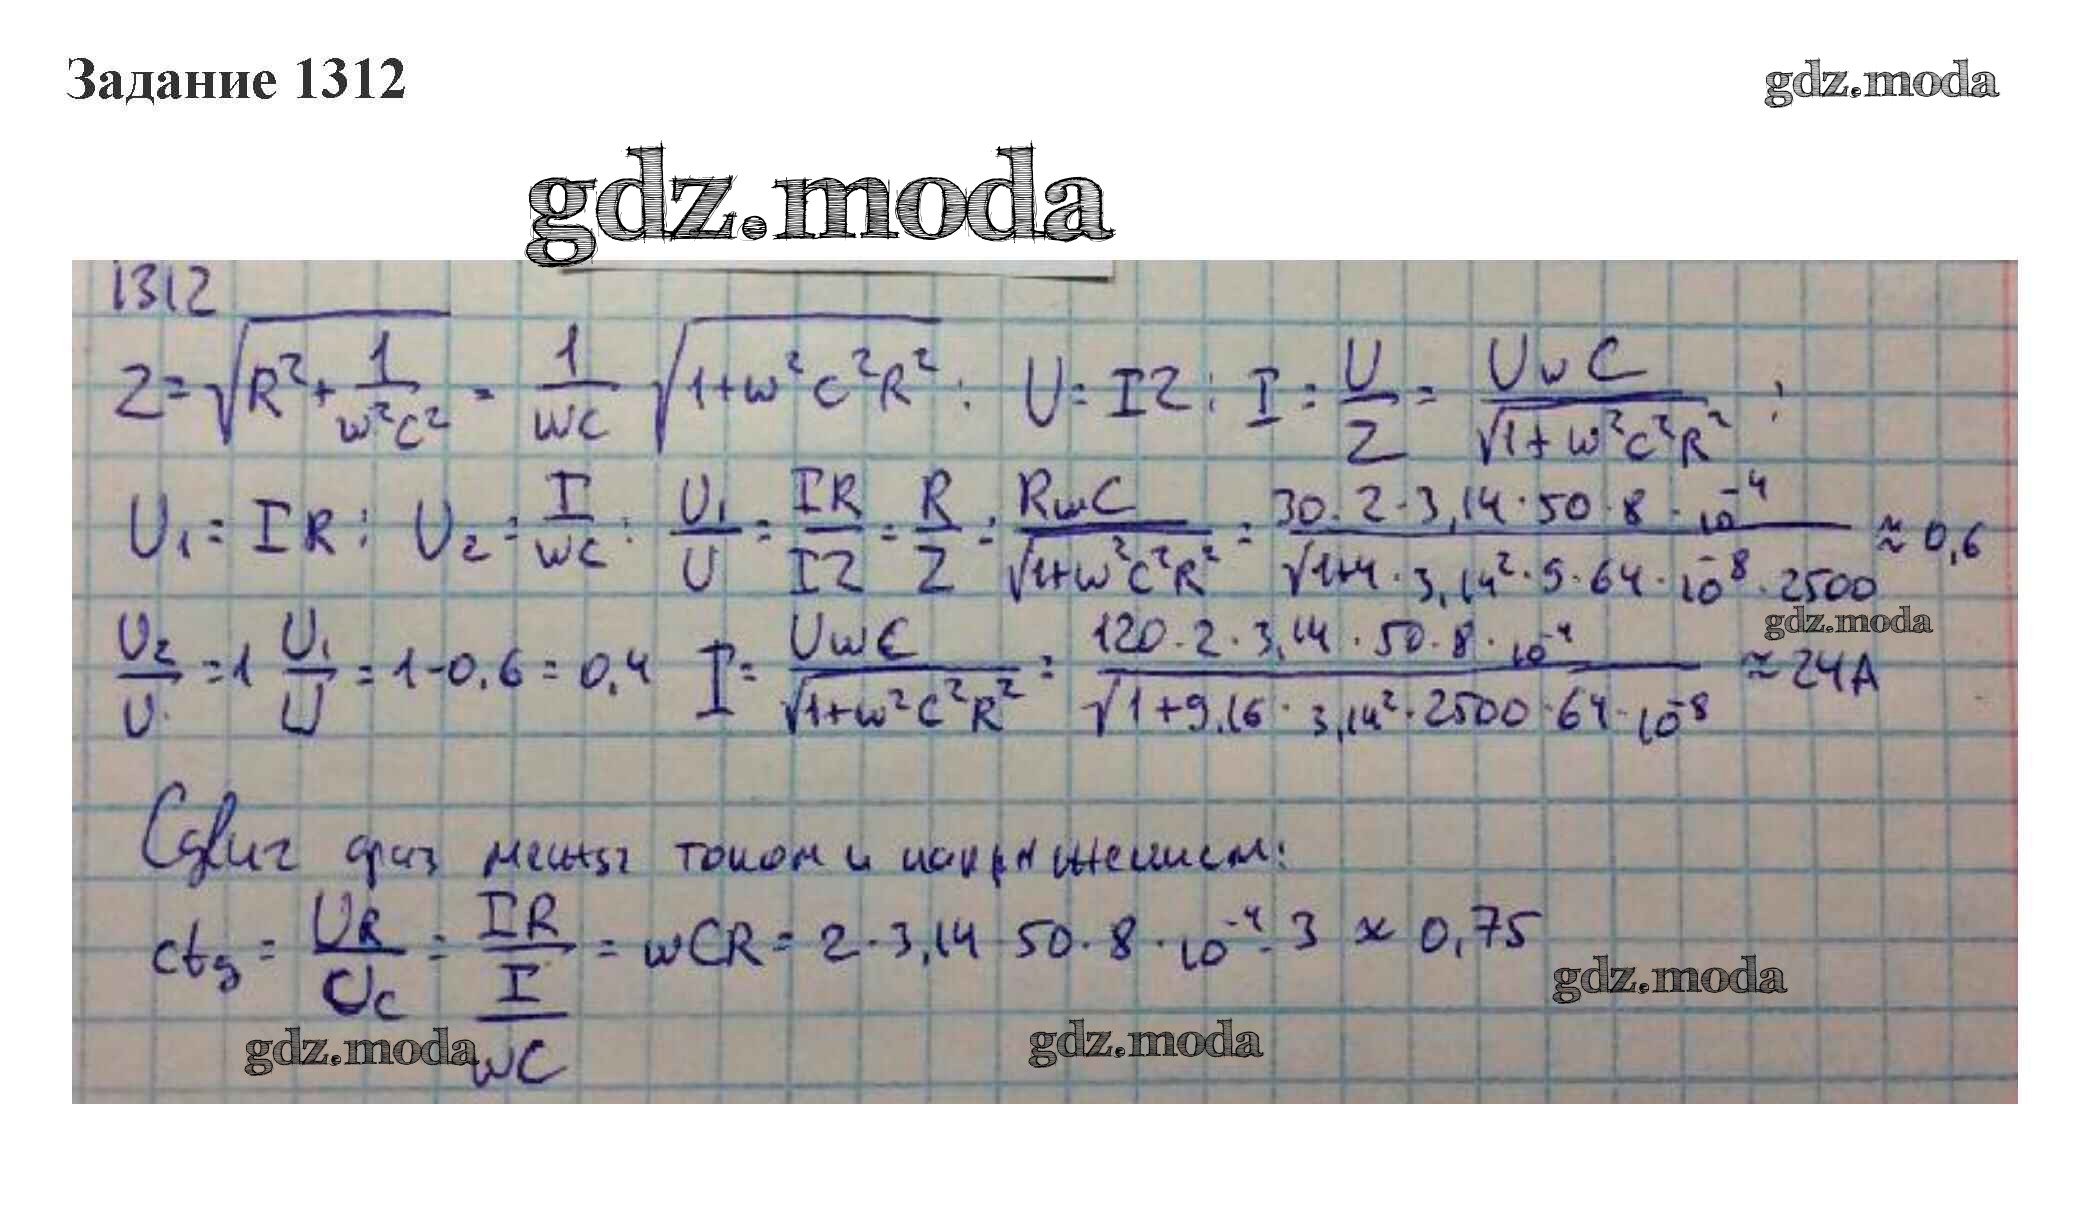 Задание 1312
gdz.moda
gdz.moda
1312
Z = √(R² + 1/(ω²C²)) = 1/(ωC) √(1+ω²C²R²) ; U = IZ ; I = U/Z = UωC/√(1+ω²C²R²) ;
U₁ = IR ; U₂ = I/(ωC) ; U₁/U = IR/IZ = R/Z = RωC/√(1+ω²C²R²) = 30·2·3,14·50·8·10⁻⁴/√(1+4·3,14²·9·64·10⁻⁸·2500) ≈ 0,6
gdz.moda
U₂/U = 1 U₁/U = 1-0,6 = 0,4 I = UωC/√(1+ω²C²R²) = 120·2·3,14·50·8·10⁻⁴/√(1+9.16·3,14²·2500·64·10⁻⁸) ≈ 24A
Сдвиг фаз между током и напряжением:
ctg = U_R/U_C = IR/(I/ωC) = ωCR = 2·3,14 50·8·10⁻⁴·3 ≈ 0,75
gdz.moda
gdz.moda
gdz.moda